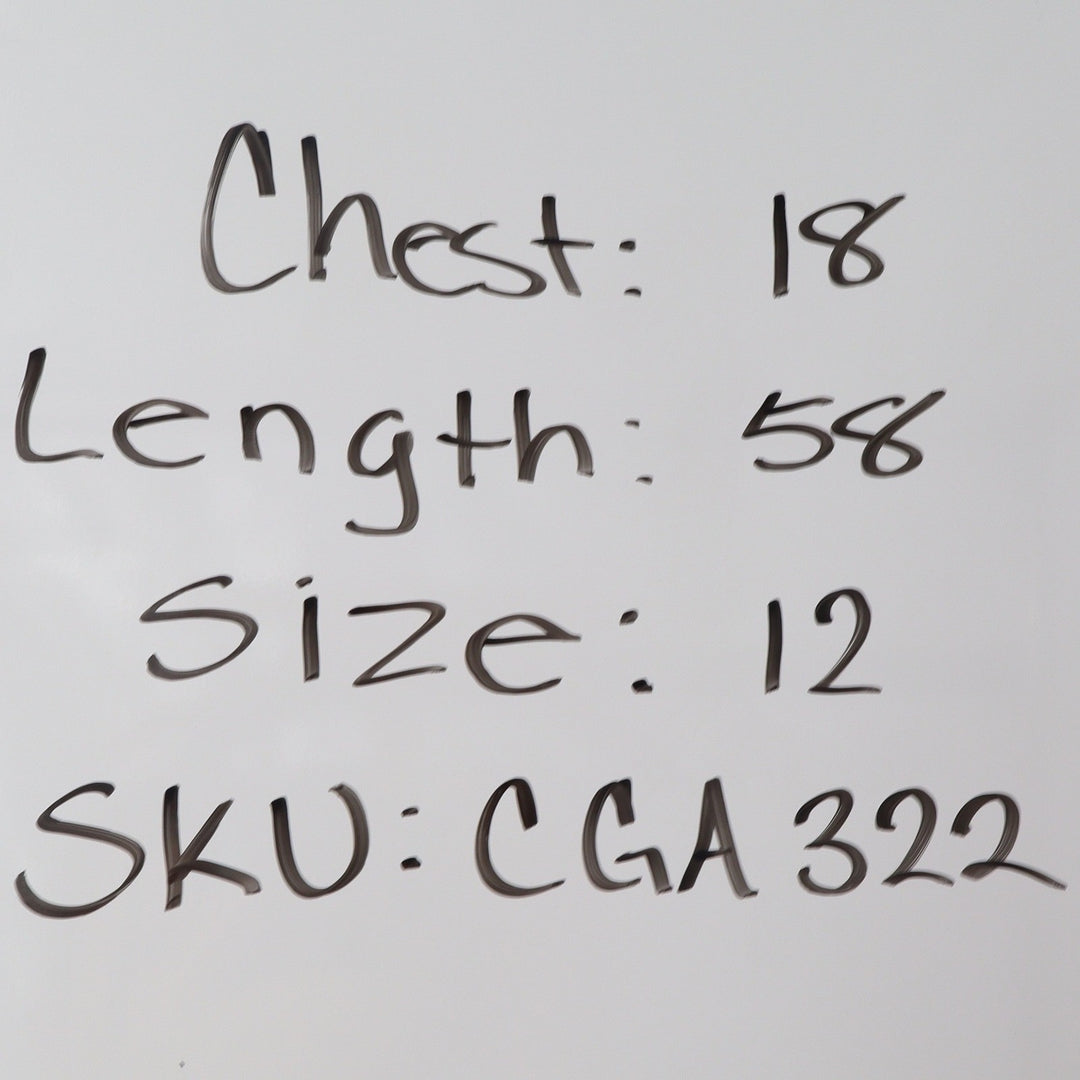 Chest: 18
Length: 58
Size: 12
SKU: CGA322